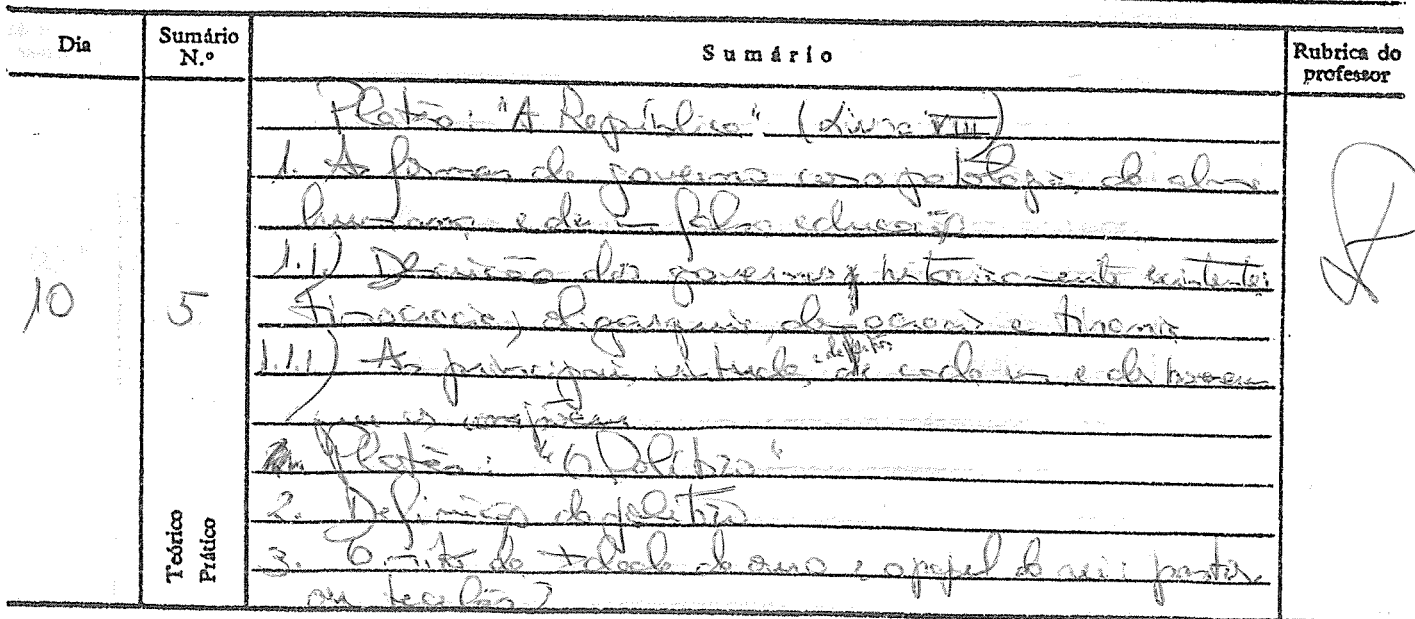 Dia
Sumário N.º
Sumário
Rubrica do professor
10
5
Teórico
Prático
Platão: "A República" (Livro VIII)
1. As formas de governo como patologia da alma
humana e de uma falsa educação
1.1) Descrição dos governos historicamente existentes
timocracia, oligarquia, democracia e tirania
1.1.1) As principais virtudes e defeitos de cada um e do homem
que os
Platão: "O Político"
2. Definição do político
3. O mito da Idade do ouro e o papel do rei: pastor
ou tecelão?